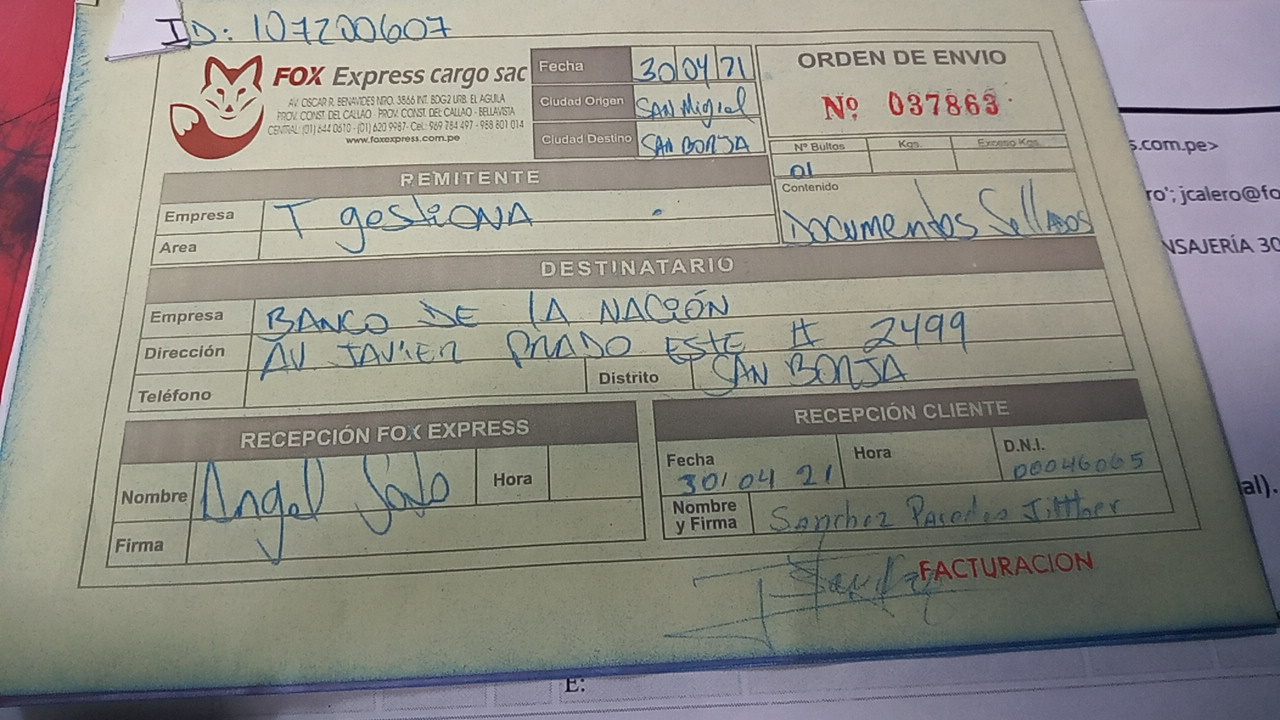 ID: 107200607
FOX Express cargo sac
AV. OSCAR R. BENAVIDES NRO. 3866 INT. BDG2 URB. EL AGUILA
PROV. CONST. DEL CALLAO - PROV. CONST. DEL CALLAO - BELLAVISTA
CENTRAL: (01) 644 0610 - (01) 620 9987 - Cel.: 969 784 497 - 988 801 014
www.foxexpress.com.pe
Fecha 30 04 21
Ciudad Origen SAN Migial
Ciudad Destino SAN BORJA
ORDEN DE ENVIO
Nº 037863
Nº Bultos Kgs. Exceso Kgs.
01
Contenido
Documentos Sellados
REMITENTE
Empresa T gestiONA
Area
DESTINATARIO
Empresa BANCO DE LA NACIÓN
Dirección AV JAVIER PRADO ESTE # 2499
Teléfono Distrito SAN BORJA
RECEPCIÓN FOX EXPRESS
Nombre Angel Hora
Firma
RECEPCIÓN CLIENTE
Fecha 30/04 21 Hora D.N.I. 00046065
Nombre y Firma Sanchez Paredes Jitther
FACTURACION
s.com.pe>
ro'; jcalero@fo
NSAJERÍA 30
al).
E: